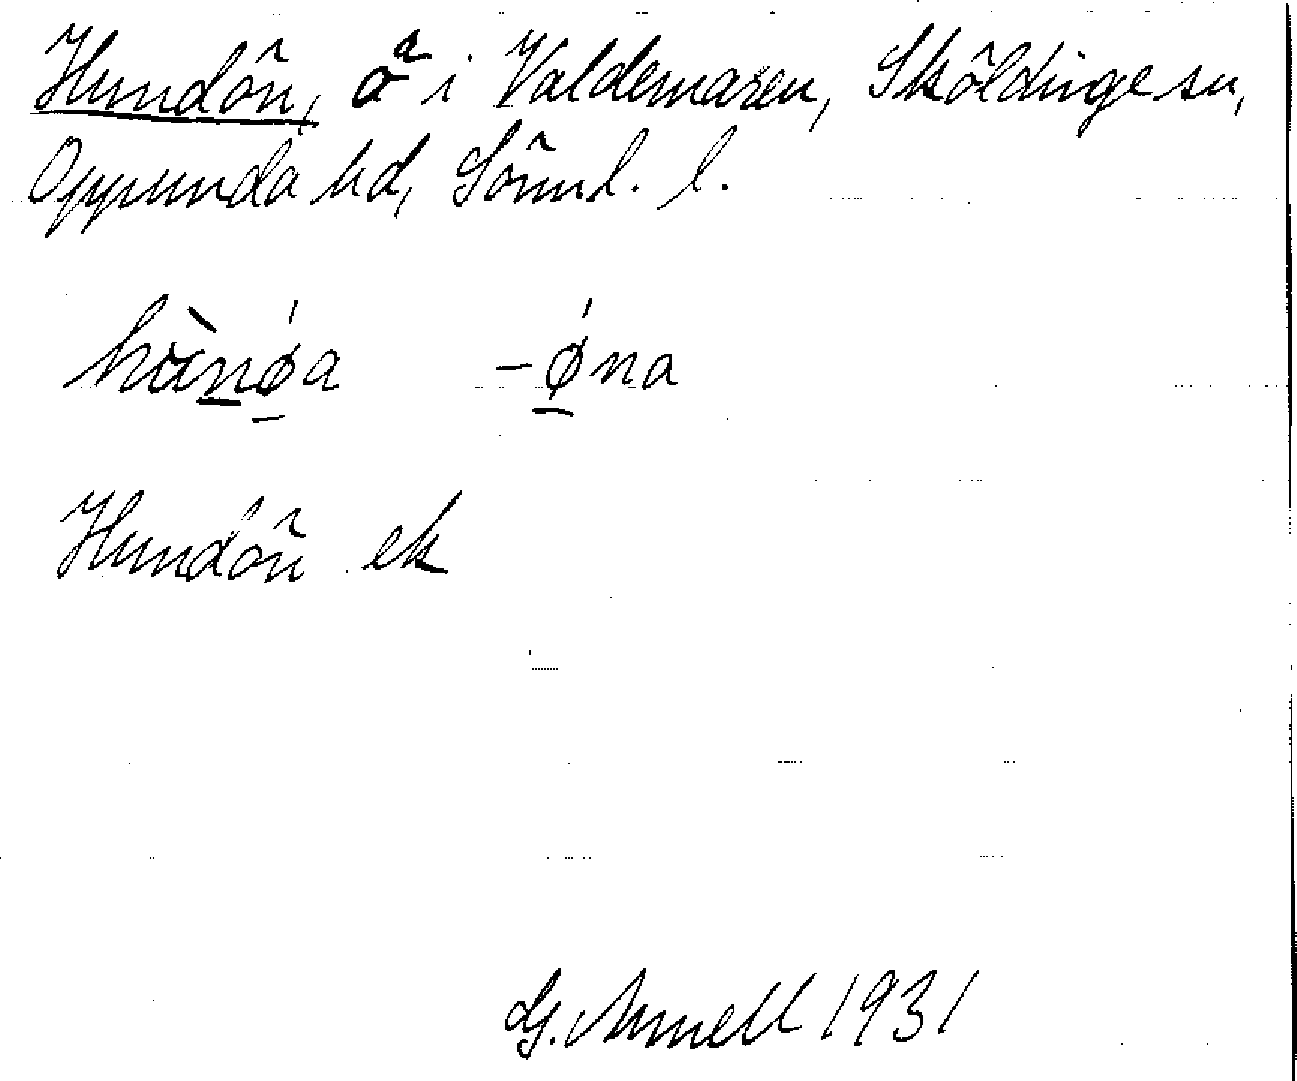 Hundön, öa i Valdemaren, Sköldinge sn,
Oppunda hd, Sörml. l.
hùnǿa -ǿna
Hundön ek
G. Arnell 1931